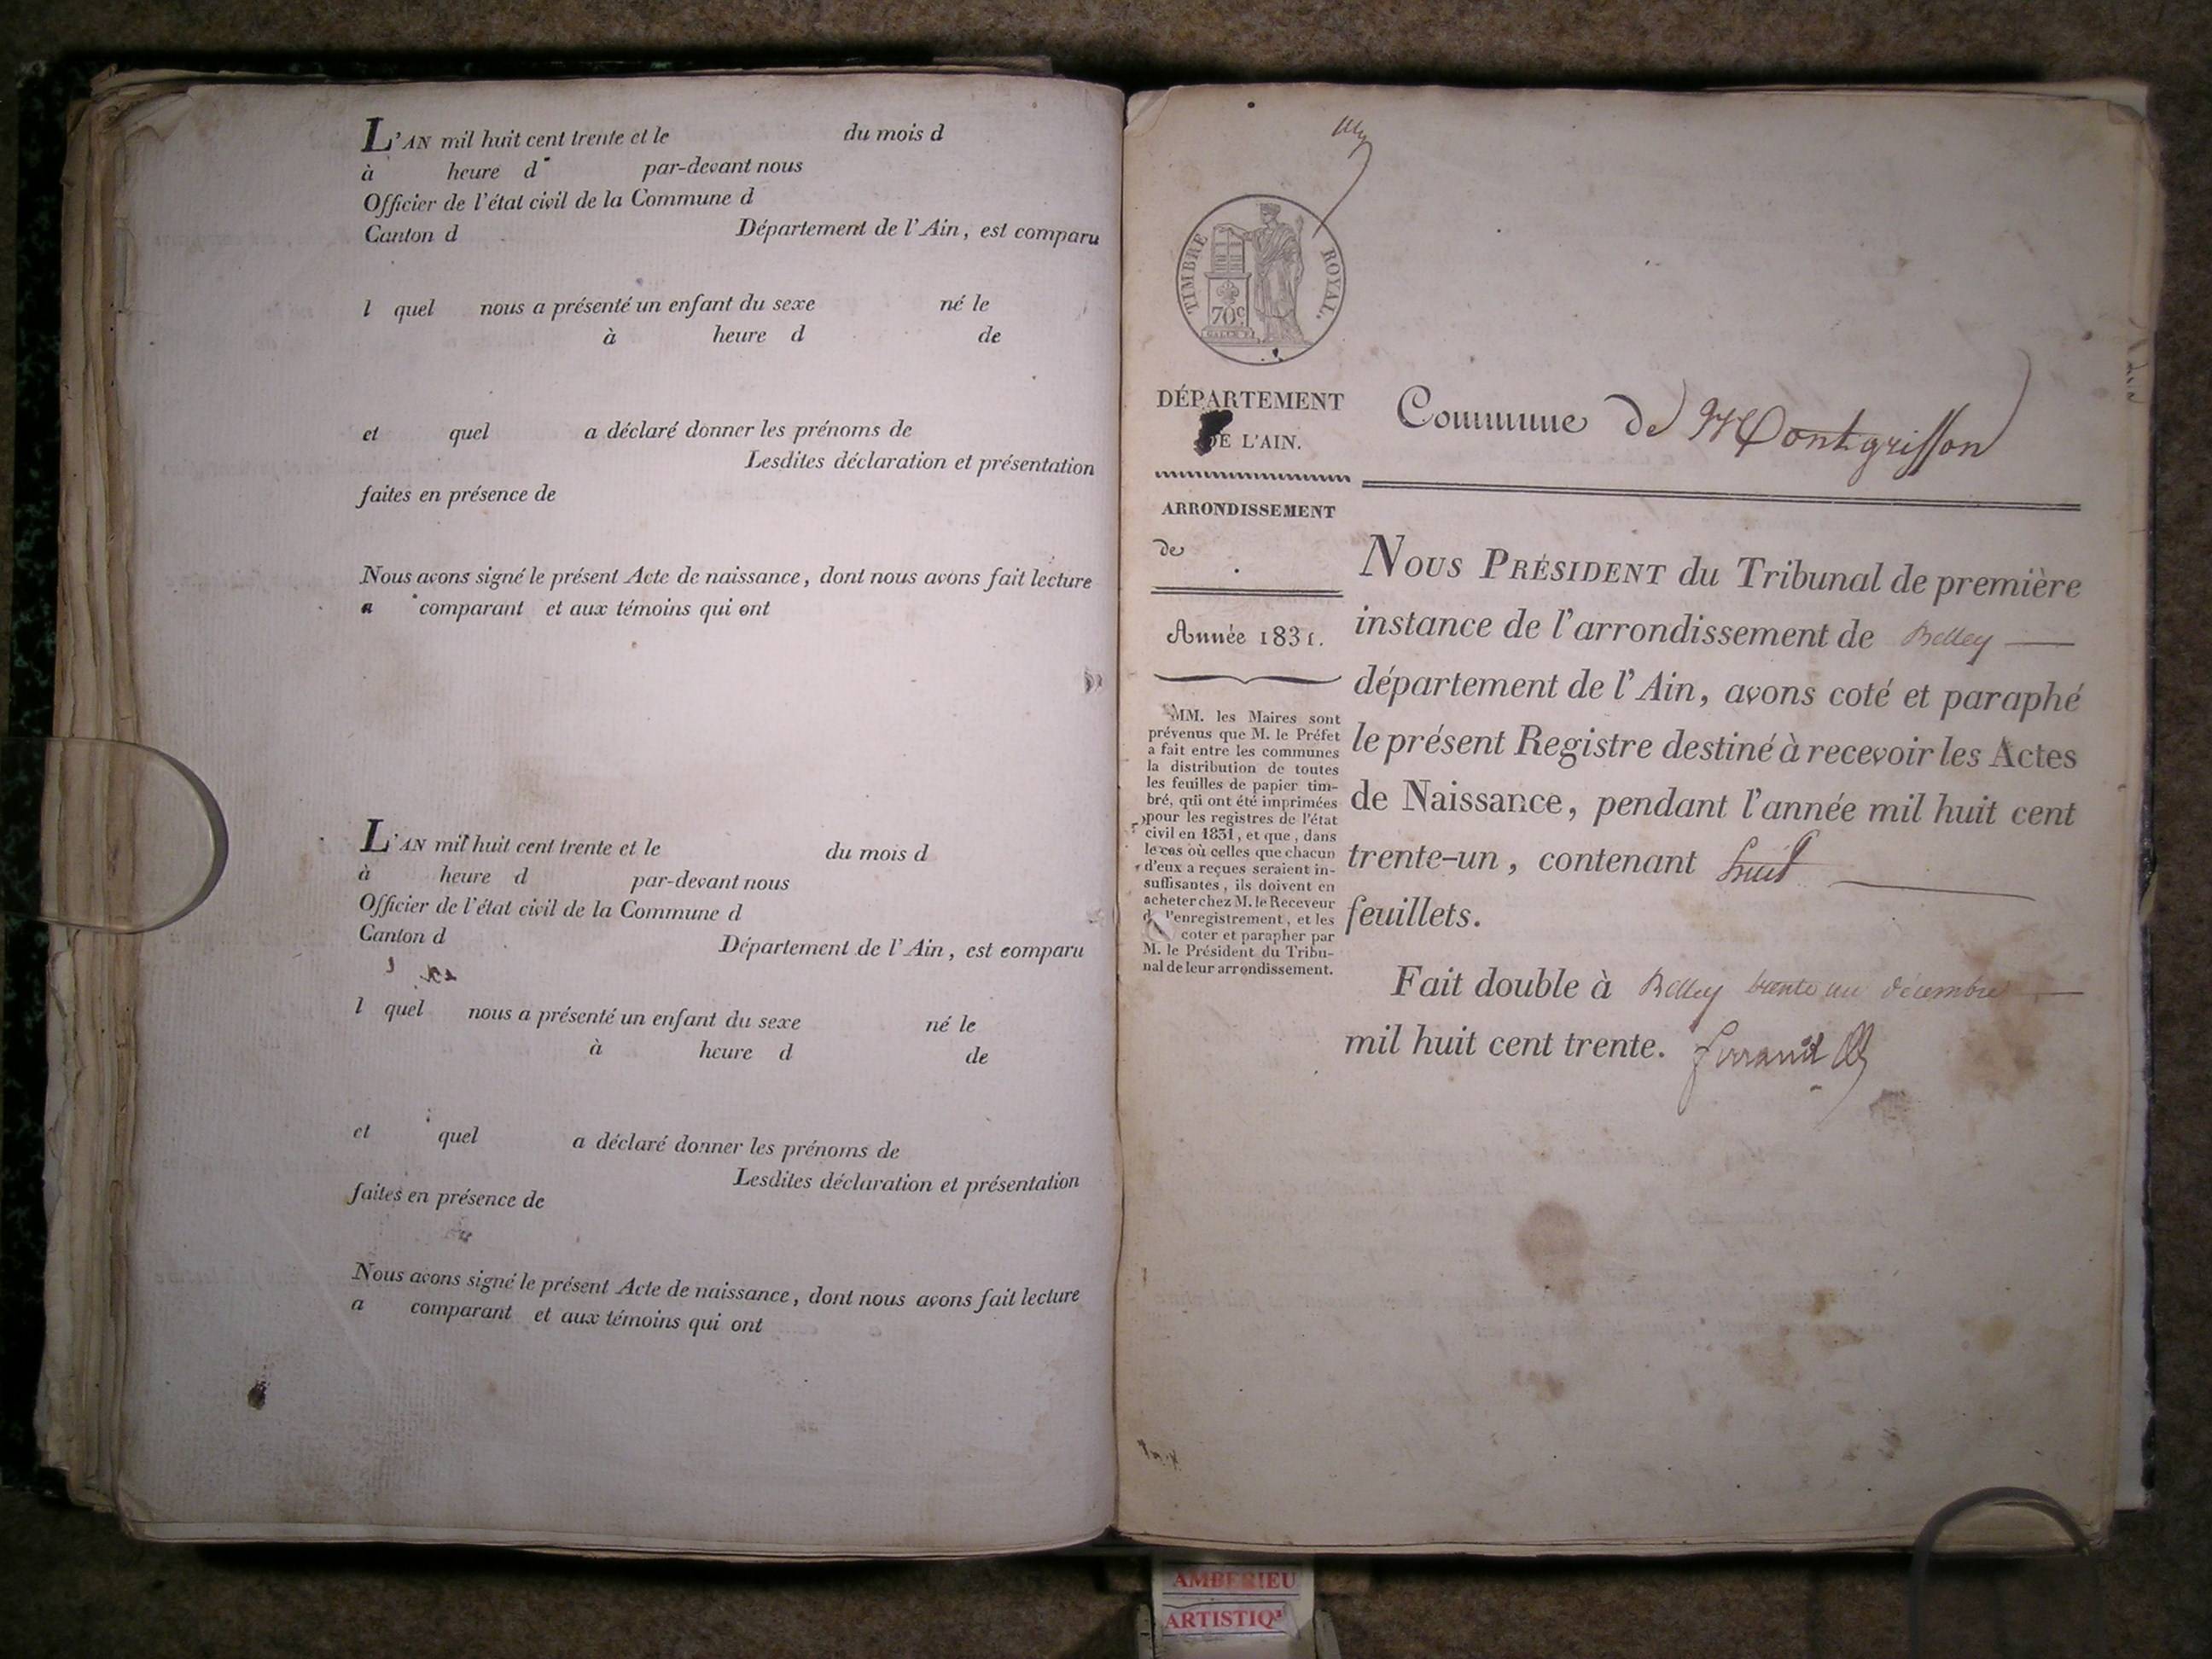 L'AN mil huit cent trente et le du mois d
à heure d par-devant nous
Officier de l'état civil de la Commune d
Canton d Département de l'Ain, est comparu
l quel nous a présenté un enfant du sexe né le
à heure d de
et quel a déclaré donner les prénoms de
Lesdites déclaration et présentation
faites en présence de
Nous avons signé le présent Acte de naissance, dont nous avons fait lecture
a comparant et aux témoins qui ont
L'AN mil huit cent trente et le du mois d
à heure d par-devant nous
Officier de l'état civil de la Commune d
Canton d Département de l'Ain, est comparu
l quel nous a présenté un enfant du sexe né le
à heure d de
et quel a déclaré donner les prénoms de
Lesdites déclaration et présentation
faites en présence de
Nous avons signé le présent Acte de naissance, dont nous avons fait lecture
a comparant et aux témoins qui ont
TIMBRE ROYAL.
70c.
DÉPARTEMENT
DE L'AIN.
ARRONDISSEMENT
de
Année 1831.
MM. les Maires sont
prévenus que M. le Préfet
a fait entre les communes
la distribution de toutes
les feuilles de papier tim-
bré, qui ont été imprimées
pour les registres de l'état
civil en 1831, et que, dans
le cas où celles que chacun
d'eux a reçues seraient in-
suffisantes, ils doivent en
acheter chez M. le Receveur
d l'enregistrement, et les
coter et parapher par
M. le Président du Tribu-
nal de leur arrondissement.
Commune de Montgrisson
NOUS PRÉSIDENT du Tribunal de première
instance de l'arrondissement de Belley
département de l'Ain, avons coté et paraphé
le présent Registre destiné à recevoir les Actes
de Naissance, pendant l'année mil huit cent
trente-un, contenant huit
feuillets.
Fait double à Belley trente un décembre
mil huit cent trente.
AMBERIEU
ARTISTIQ